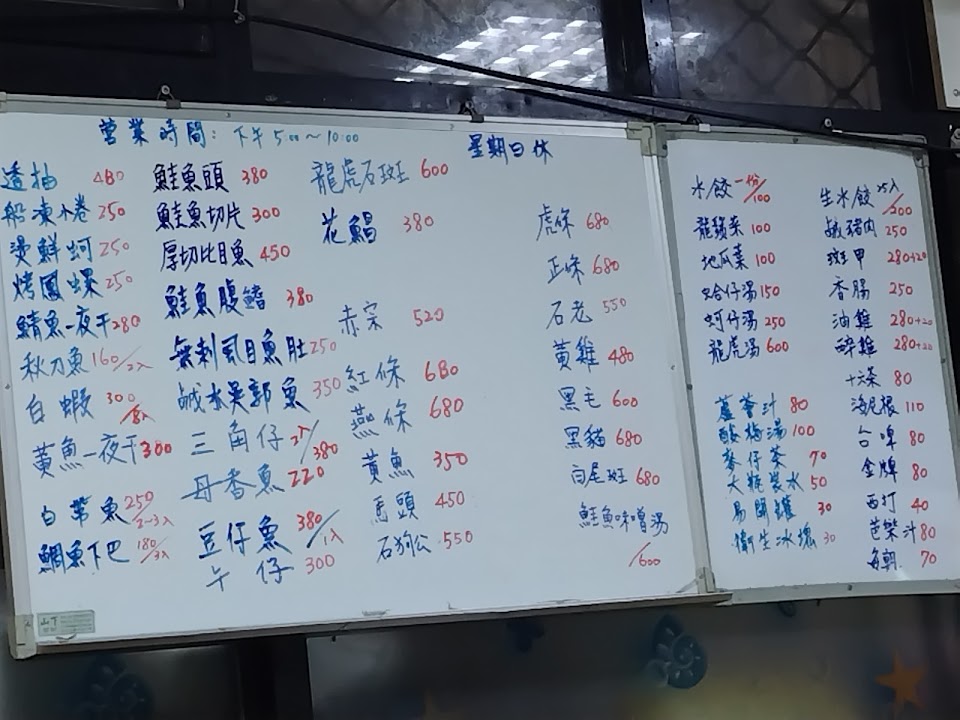 營業時間: 下午 5:00～10:00
星期日休
透抽 480
船凍小卷 250
燙鮮蚵 250
烤鳳螺 250
鯖魚一夜干 280
秋刀魚 160/2入
白蝦 300/8入
黃魚一夜干 300
白帶魚 250/2-3入
鯛魚下巴 180/3入
鮭魚頭 380
鮭魚切片 300
厚切比目魚 450
鮭魚腹鰭 380
無刺虱目魚肚 250
鹹水吳郭魚 350
三角仔 2入/380
丹香魚 220
豆仔魚 380/1入
午仔 300
龍虎石斑 600
花鯧 380
赤宗 520
紅條 680
燕條 680
黃魚 350
馬頭 450
石狗公 550
虎條 680
正條 680
石老 550
黃雞 480
黑毛 600
黑貓 680
白尾斑 680
鮭魚味噌湯
/600
水餃 一份/100
龍鬚菜 100
地瓜葉 100
蛤仔湯 150
蚵仔湯 250
龍虎湯 600
蘆薈汁 80
酸梅湯 100
麥仔茶 70
大瓶裝水 50
易開罐 30
衛生冰塊 30
生水餃 25入/200
鹹豬肉 250
斑甲 280+20
香腸 250
油雞 280+20
醉雞 280+20
十六茶 80
海尼根 110
台啤 80
金牌 80
西打 40
芭樂汁 80
每朝 70
山下